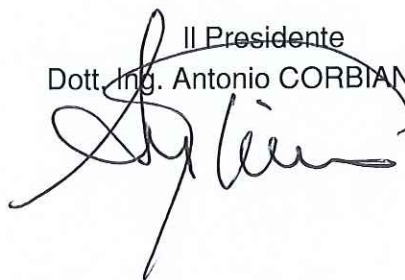 Il Presidente
Dott. Ing. Antonio CORBIAN